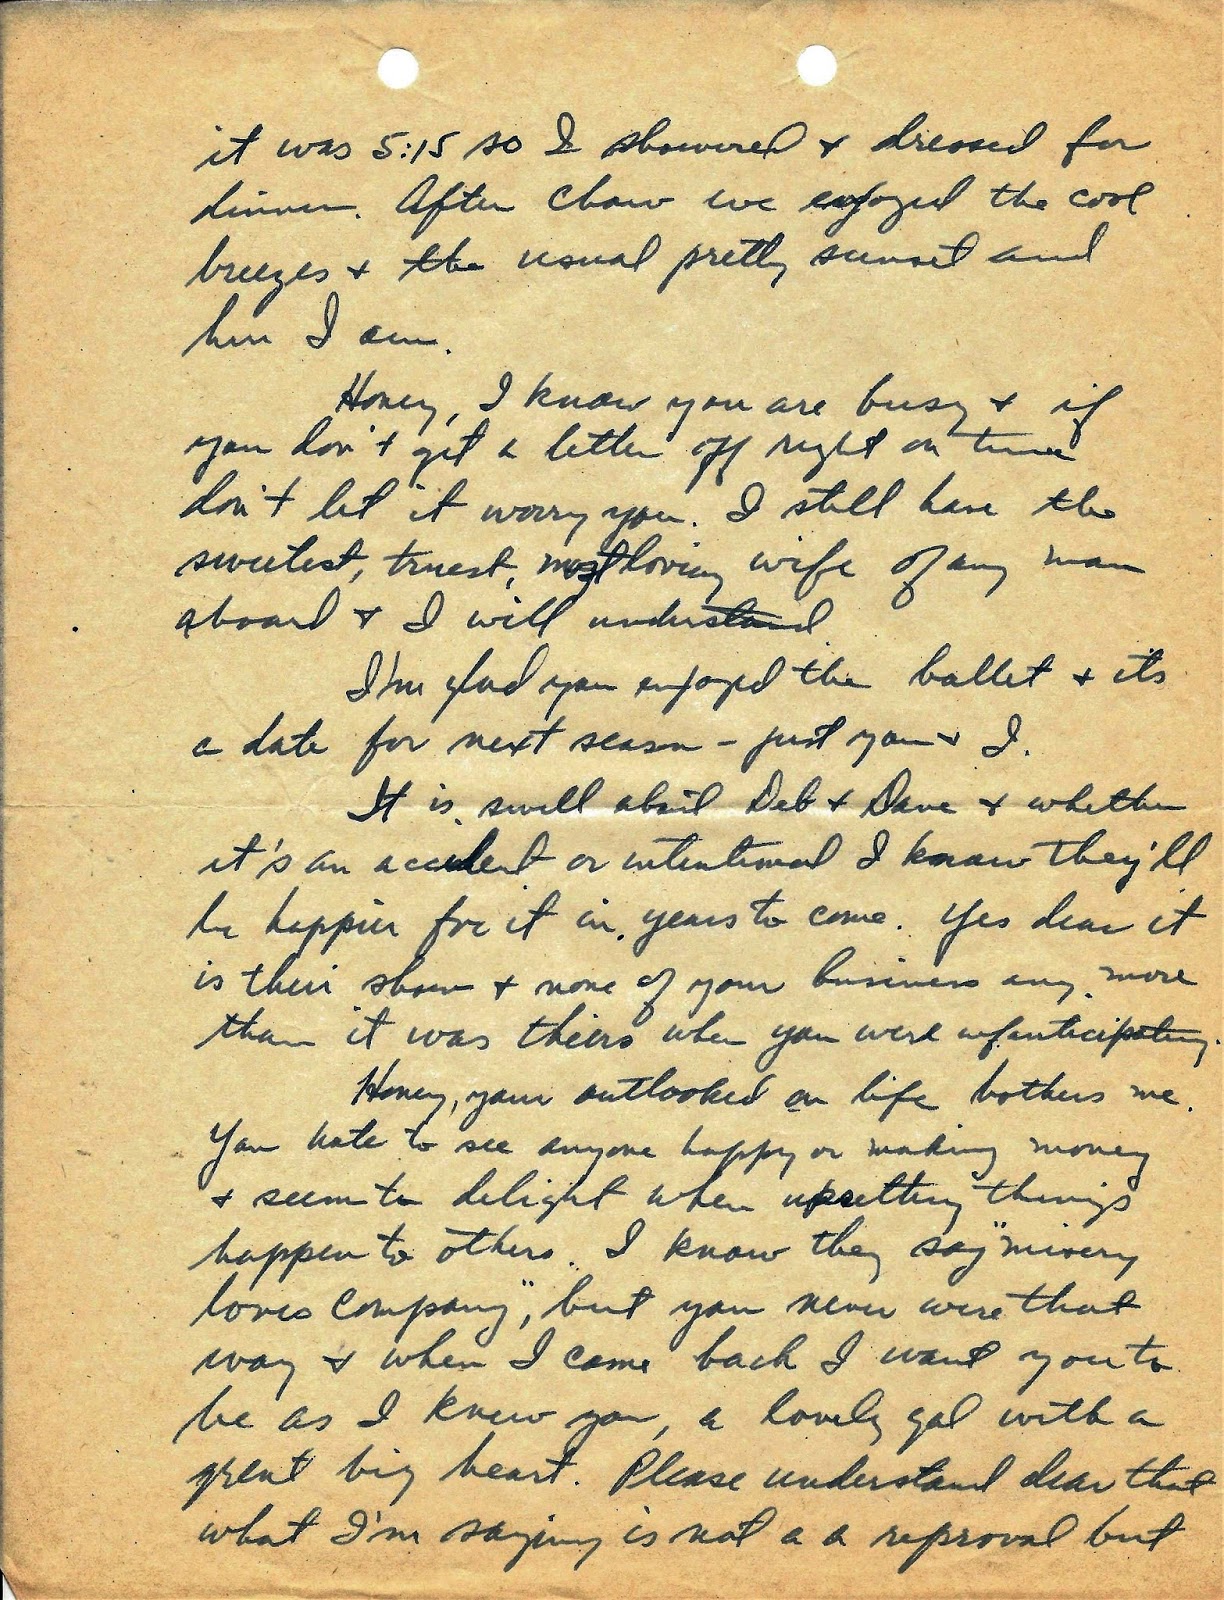 it was 5:15 so I showered & dressed for
dinner. After chow we enjoyed the cool
breezes & the usual pretty sunset and
here I am.
Honey, I know you are busy & if
you don't get a letter off right on time
don't let it worry you. I still have the
sweetest, truest, most loving wife of any man
aboard & I will understand
I'm glad you enjoyed the ballet & its
a date for next season - just you & I.
It is swell about Deb & Dave & whether
it's an accident or intentional I know they'll
be happier for it in years to come. Yes dear it
is their show & none of your business any more
than it was theirs when you were infanticipating.
Honey, your outlooked on life bothers me.
You hate to see anyone happy or making money
& seem to delight when upsetting things
happen to others. I know they say "misery
loves company", but you never were that
way & when I come back I want you to
be as I knew you, a lovely gal with a
great big heart. Please understand dear that
what I'm saying is not a a reproval but